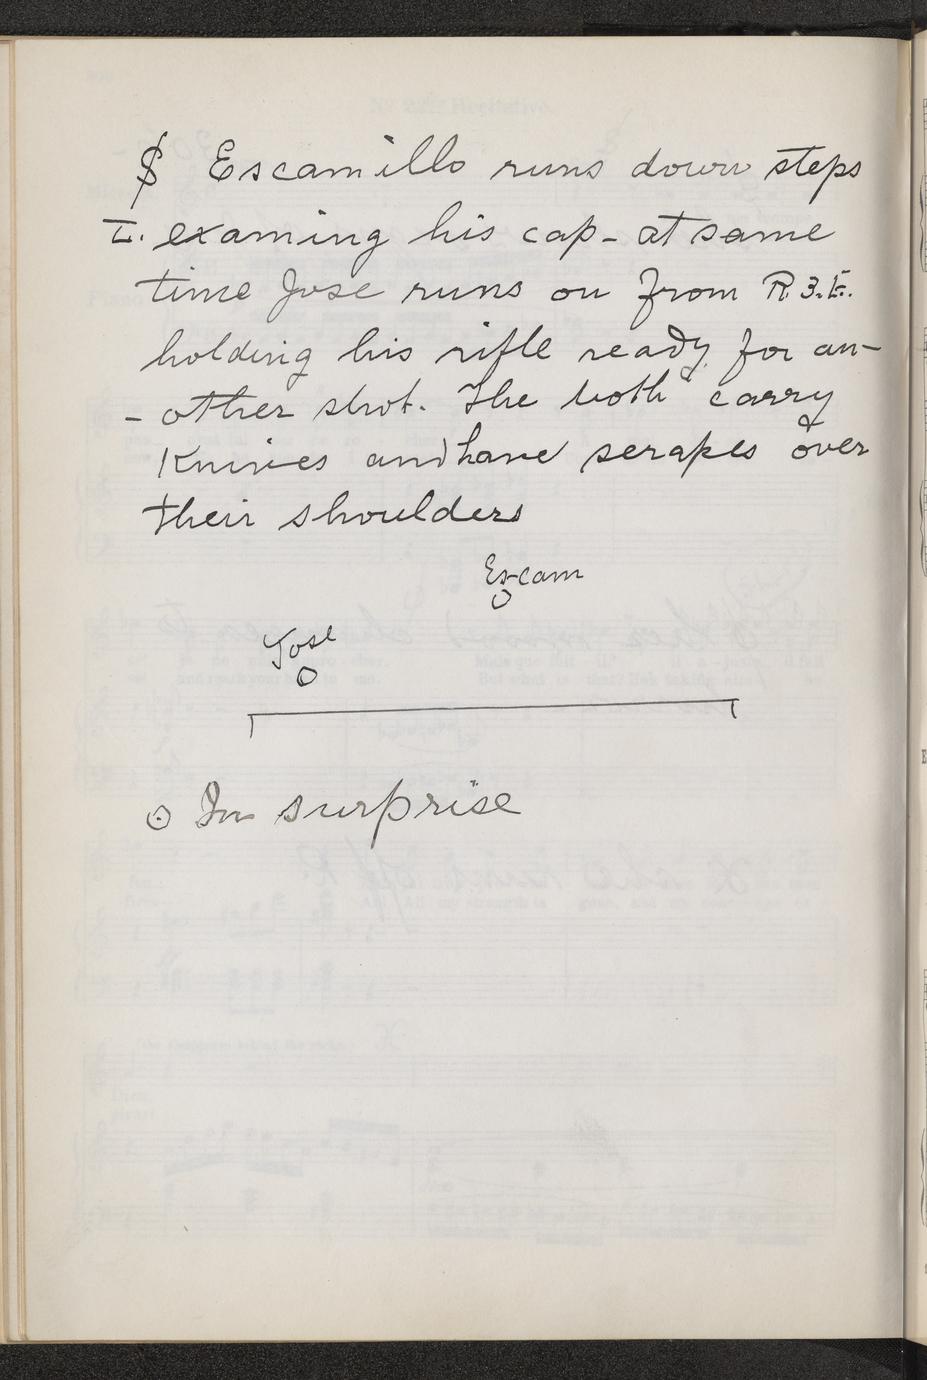 $ Escamillo runs down steps
I. examing his cap - at same
time Jose runs on from R.3.E.
holding his rifle ready for an-
- other shot. The both carry
Knives and have serapes over
their shoulders
Escam
Jose
⊙ In surprise